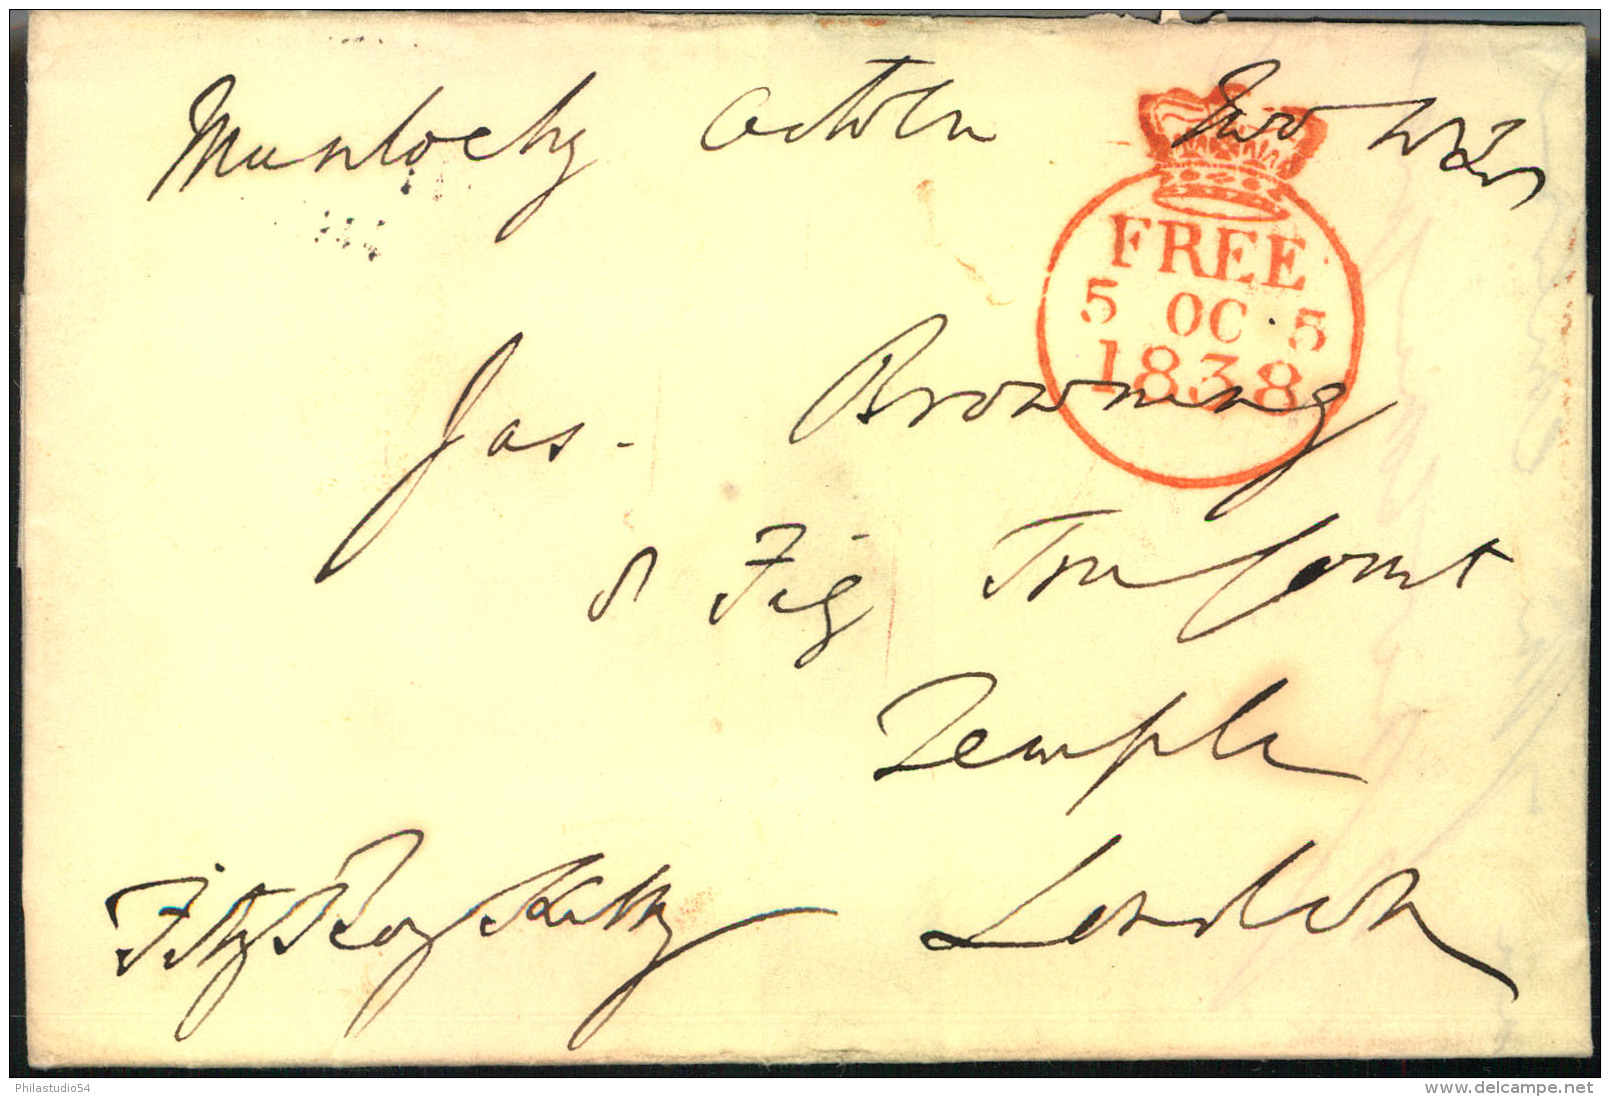 Munlochy October Two 1838
FREE
5 OC 5
1838
Jas. Browning
8 Fig Tree Court
Temple
London
FitzRoy Kelly
Philastudio54
www.delcampe.net